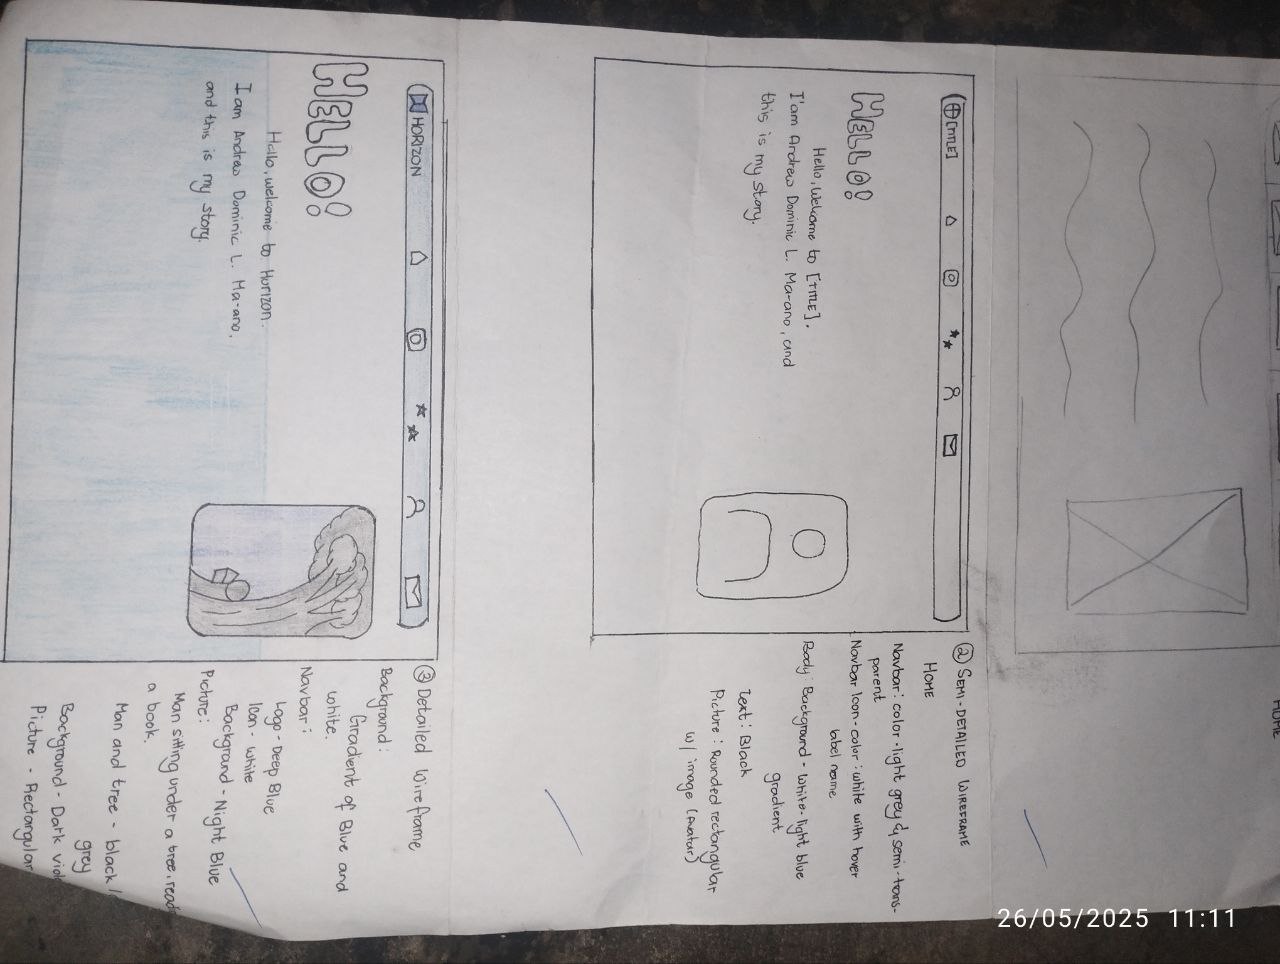 HOME
26/05/2025 11:11
[TITLE]
HELLO!
Hello, Welcome to [TITLE].
I'am Andrew Dominic L. Ma-ano, and
this is my story.
② SEMI-DETAILED WIREFRAME
HOME
Navbar: color - light grey & semi-trans-
parent
Navbar Icon - color : white with hover
label name
Body: Background - white-light blue
gradient
Text: Black
Picture : Rounded rectangular
w/ image (Avatar)
HORIZON
HELLO!
Hello, welcome to Horizon.
I am Andrew Dominic L. Ma-ano,
and this is my story.
③ Detailed Wireframe
Background:
Gradient of Blue and
white.
Navbar:
Logo - Deep Blue
Icon - white
Background - Night Blue
Picture:
Man sitting under a tree, readi
a book.
Man and tree - black /
grey
Background - Dark viol
Picture - Rectangular